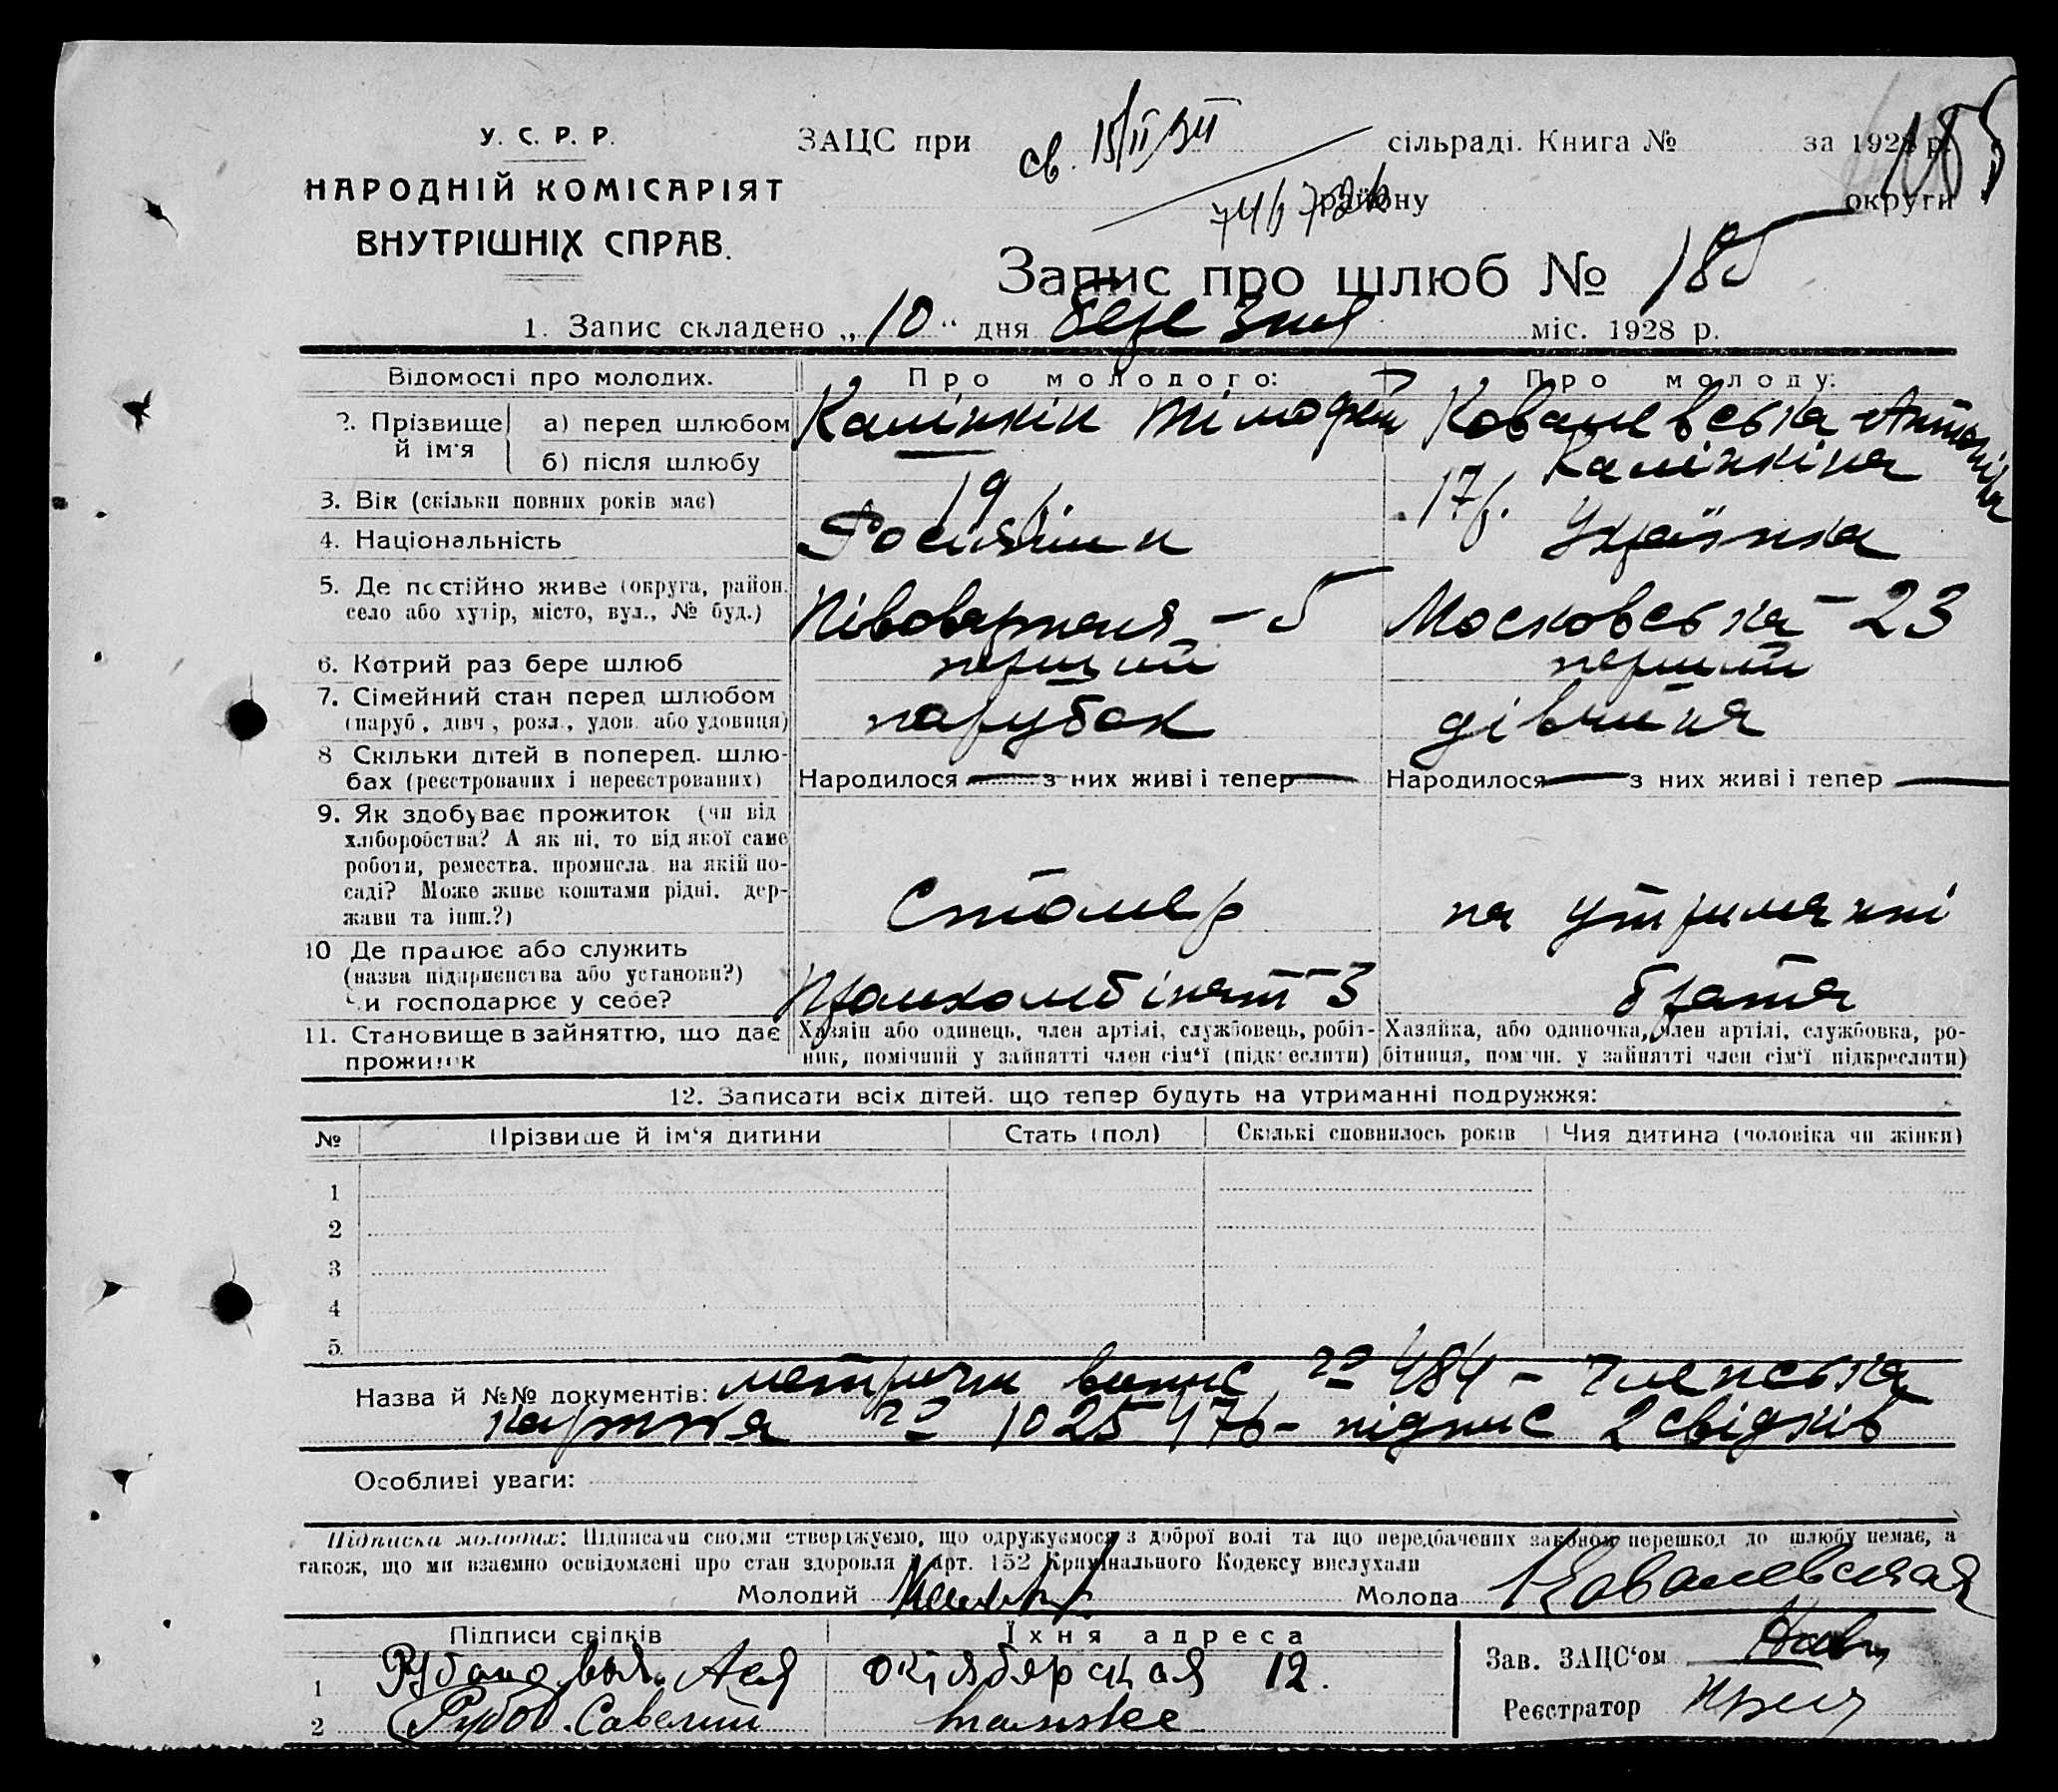 У. С. Р. Р.
НАРОДНІЙ КОМІСАРІЯТ
ВНУТРІШНІХ СПРАВ.
ЗАЦС при сільраді. Книга № за 1928 р.
св. 15/II
району округи
185
Запис про шлюб № 185
1. Запис складено „10“ дня березня міс. 1928 р.
Відомості про молодих. Про молодого: Про молоду:
2. Прізвище й ім'я а) перед шлюбом Калінкін Тімофей Ковалевська Антоніна
б) після шлюбу — Калінкіна
3. Вік (скільки повних років має) 19 р. 17 р.
4. Національність Росіянин Українка
5. Де постійно живе (округа, район,
село або хутір, місто, вул., № буд.) Півоварная – 5 Московська – 23
6. Котрий раз бере шлюб перший перший
7. Сімейний стан перед шлюбом
(паруб., дівч., розл., удов. або удовиця) парубок дівчина
8 Скільки дітей в поперед. шлю-
бах (реєстрованих і нереєстрованих) Народилося — з них живі і тепер — Народилося — з них живі і тепер —
9. Як здобуває прожиток (чи від
хліборобства? А як ні, то від якої саме
роботи, ремества, промисла, на якій по-
саді? Може живе коштами рідні, дер-
жави та інш.?) Столяр на утриманні
10 Де працює або служить
(назва підприємства або установи?)
Чи господарює у себе? Промкомбінат – 3 брата
11. Становище в зайняттю, що дає
прожиток
Хазяін або одинець, член артілі, службовець, робіт-
ник, помічний у зайнятті член сім‘ї (підкреслити)
Хазяйка, або одиночка, член артілі, службовка, ро-
бітниця, помічн. у зайнятті член сім‘ї підкреслити)
12. Записати всіх дітей, що тепер будуть на утриманні подружжя:
№ Прізвище й ім‘я дитини Стать (пол) Скількі сповнилось років Чия дитина (чоловіка чи жінки)
1
2
3
4
5.
Назва й №№ документів: метричн випис № 484 – Членська
картка № 1025476 – підпис 2 свідків
Особливі уваги:
Підписка молодих: Підписами своїми стверджуємо, що одружуємося з доброї волі та що передбачених законом перешкод до шлюбу немає, а
також, що ми взаємно освідомлені про стан здоровля й арт. 152 Кримінального Кодексу вислухали
Молодий Молода Ковалевская
Підписи свідків Їхня адреса
1 Ася октябрская 12.
2 Рубов. Савелий
Зав. ЗАЦС‘ом
Реєстратор